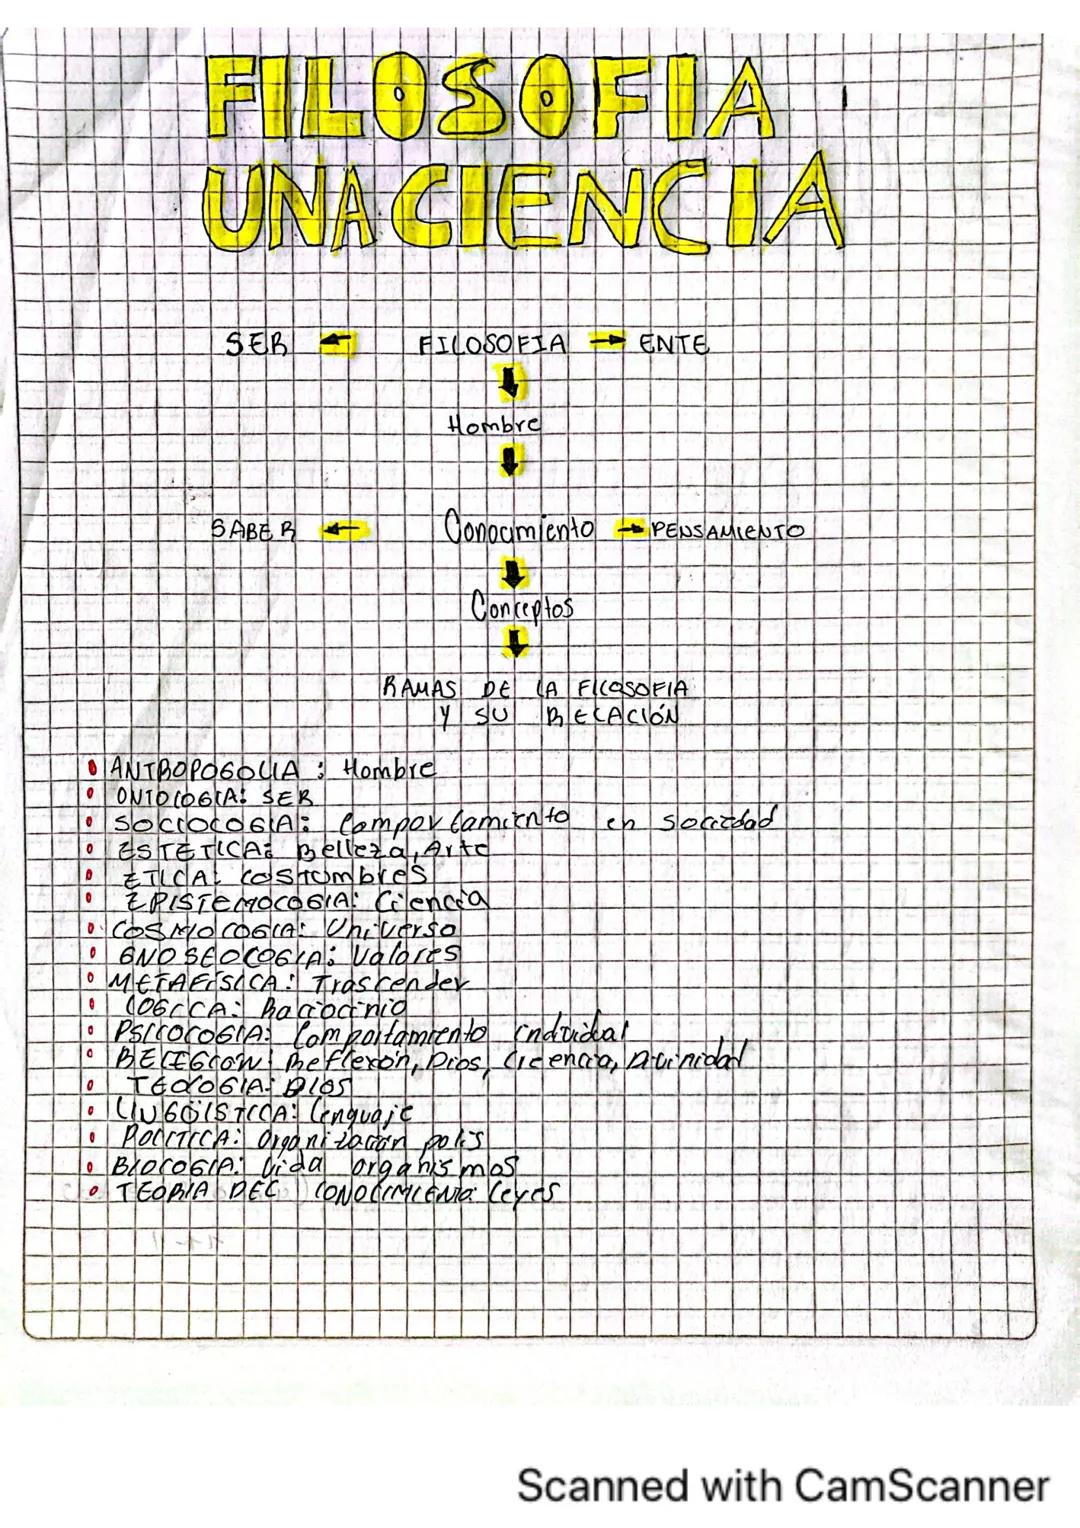 FILOSOFIA
UNA CIENCIA
SER ← FILOSOFIA → ENTE
↓
Hombre
↓
SABER ← Conocimiento → PENSAMIENTO
↓
Conceptos
↓
RAMAS DE LA FILOSOFIA
Y SU RELACIÓN
• ANTROPOGOLIA : Hombre
• ONTOLOGIA: SER
• SOCIOLOGIA: Comportamiento en sociedad
• ESTETICA: Belleza, Arte
• ETICA: Costumbres
• EPISTEMOLOGIA: Ciencia
• COSMOLOGIA: Universo
• GNOSEOLOGIA: Valores
• METAFÍSICA: Trascender
• LOGICA: Raciocinio
• PSICOLOGIA: Comportamiento individal
• RELIGION: Reflexón, Dios, Cicencia, Divinidad
• TEOLOGIA: DIOS
• LINGÜISTICA: Lenguaje
• POLITICA: Organización polis
• BIOLOGIA: Vida organismos
• TEORIA DEL CONOCIMIENTO: Leyes
Scanned with CamScanner